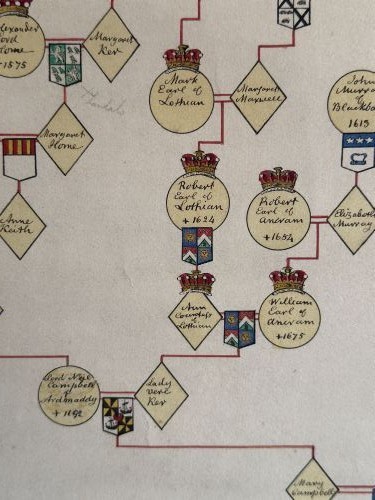 Alexander
Lord
Home
+1575
Margaret
Ker
Mark
Earl of
Lothian
Margaret
Maxwell
John
Murray
of
Blackba
1613
Margaret
Home
Robert
Earl of
Lothian
+1624
Robert
Earl of
Ancram
+1654
Elizabeth
Murray
Anne
Keith
Ann
Countess of
Lothian
William
Earl of
Ancram
+1675
Lord Neil
Campbell
of
Ardmaddy
+1692
Lady
Vere
Ker
Mary
Campbell